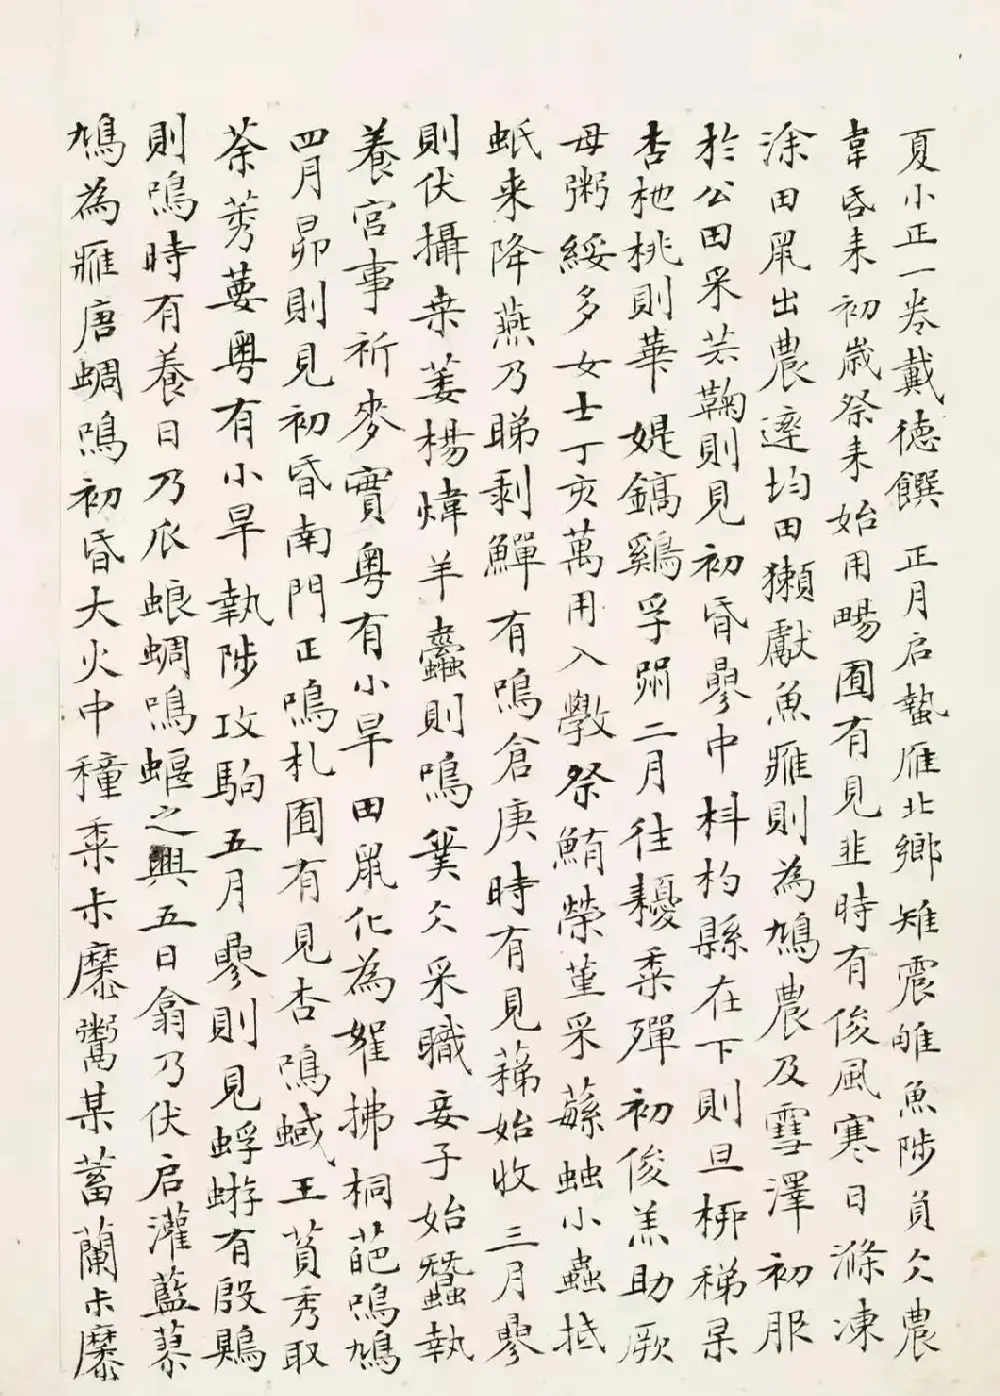 夏小正一卷戴德饌　正月启蟄雁北鄉雉震雊魚陟負仌農
韋昏耒初歲祭耒始用畼囿有見韭時有俊風寒日滌凍
涂田鼠出農達均田獺獻魚雁則為鳩農及雪澤初服
於公田采芸鞠則見初昏曑中枓杓縣在下則旦桺稊杲
杏杝桃則華媞鎬雞孚粥二月往耰黍殫初俊羔助厥
母粥綏多女士丁亥萬用入斆祭鮪榮堇采蘇蚰小蟲抵
蚔来降燕乃睇剥鱓有鳴倉庚時有見蕛始收三月曑
則伏攝桒萎楊煒羊蠭則鳴巽仌采職妾子始蠶執
養宮事祈麥實粵有小旱田鼠化為拂桐葩鳴鳩
四月昴則見初昏南門正鳴札囿有見杏鳴蜮王萯秀取
荼莠葽粵有小旱執陟攻駒五月曑則見蜉蝣有殷鶪
則鳴時有養日乃瓜蜋蜩鳴蝘之興五日翕乃伏启灌藍蓼
鳩為雁唐蜩鳴初昏大火中穜黍尗麋鬻某蓄蘭尗麋